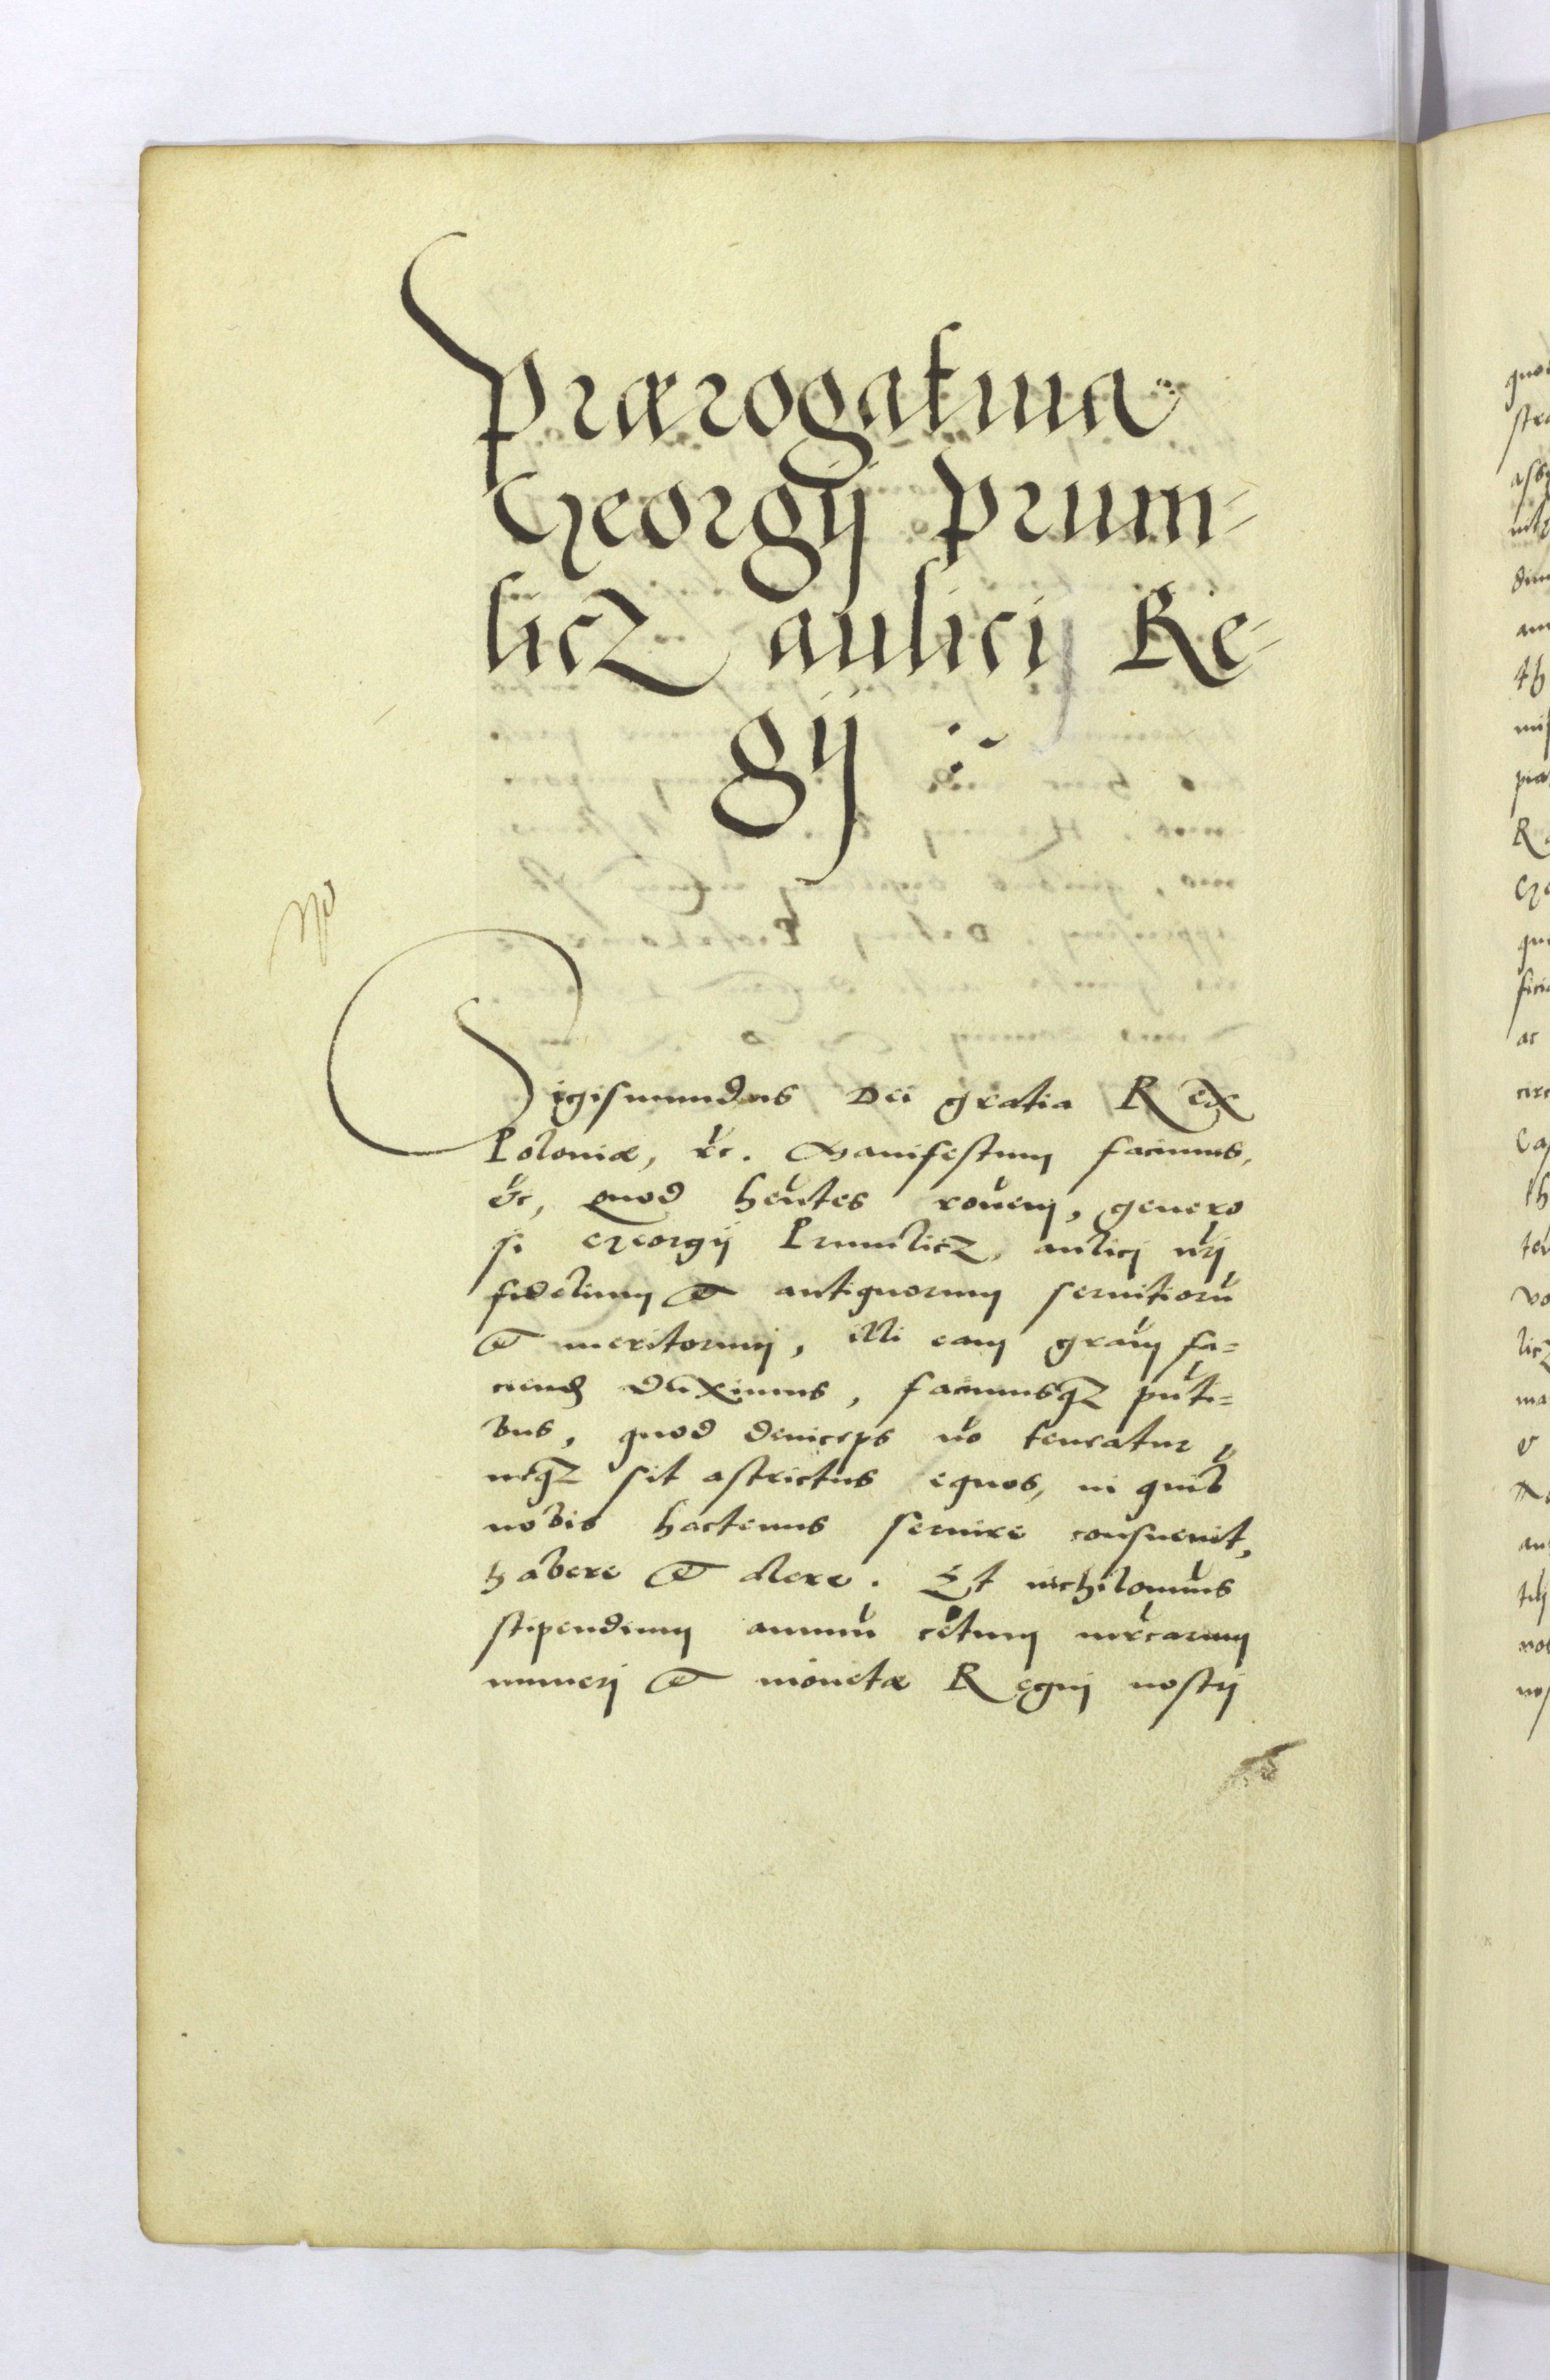 Prærogatiua
Georgij Prum-
licz aulici Re-
gij
Sigismundus Dei gratia Rex
Poloniæ, &c. Manifestum facimus,
&c, Quod hentes rõuem, genero
si Georgij Prumlicz, aulici nrj
fidelium & antiquorum seruitiorũ
& meritorum, illi eam gram̃ fa-
ciendã duximus, facimusqz pũti-
bus, quod deinceps nõ teneatur,
neqz sit astrictus equos, in quib
nobis hactenus seruire consueuit,
habere & alere. Et nichilominus
stipendium annuũ cẽtum mr̃carum
numerj & monetæ Regnj nostrj